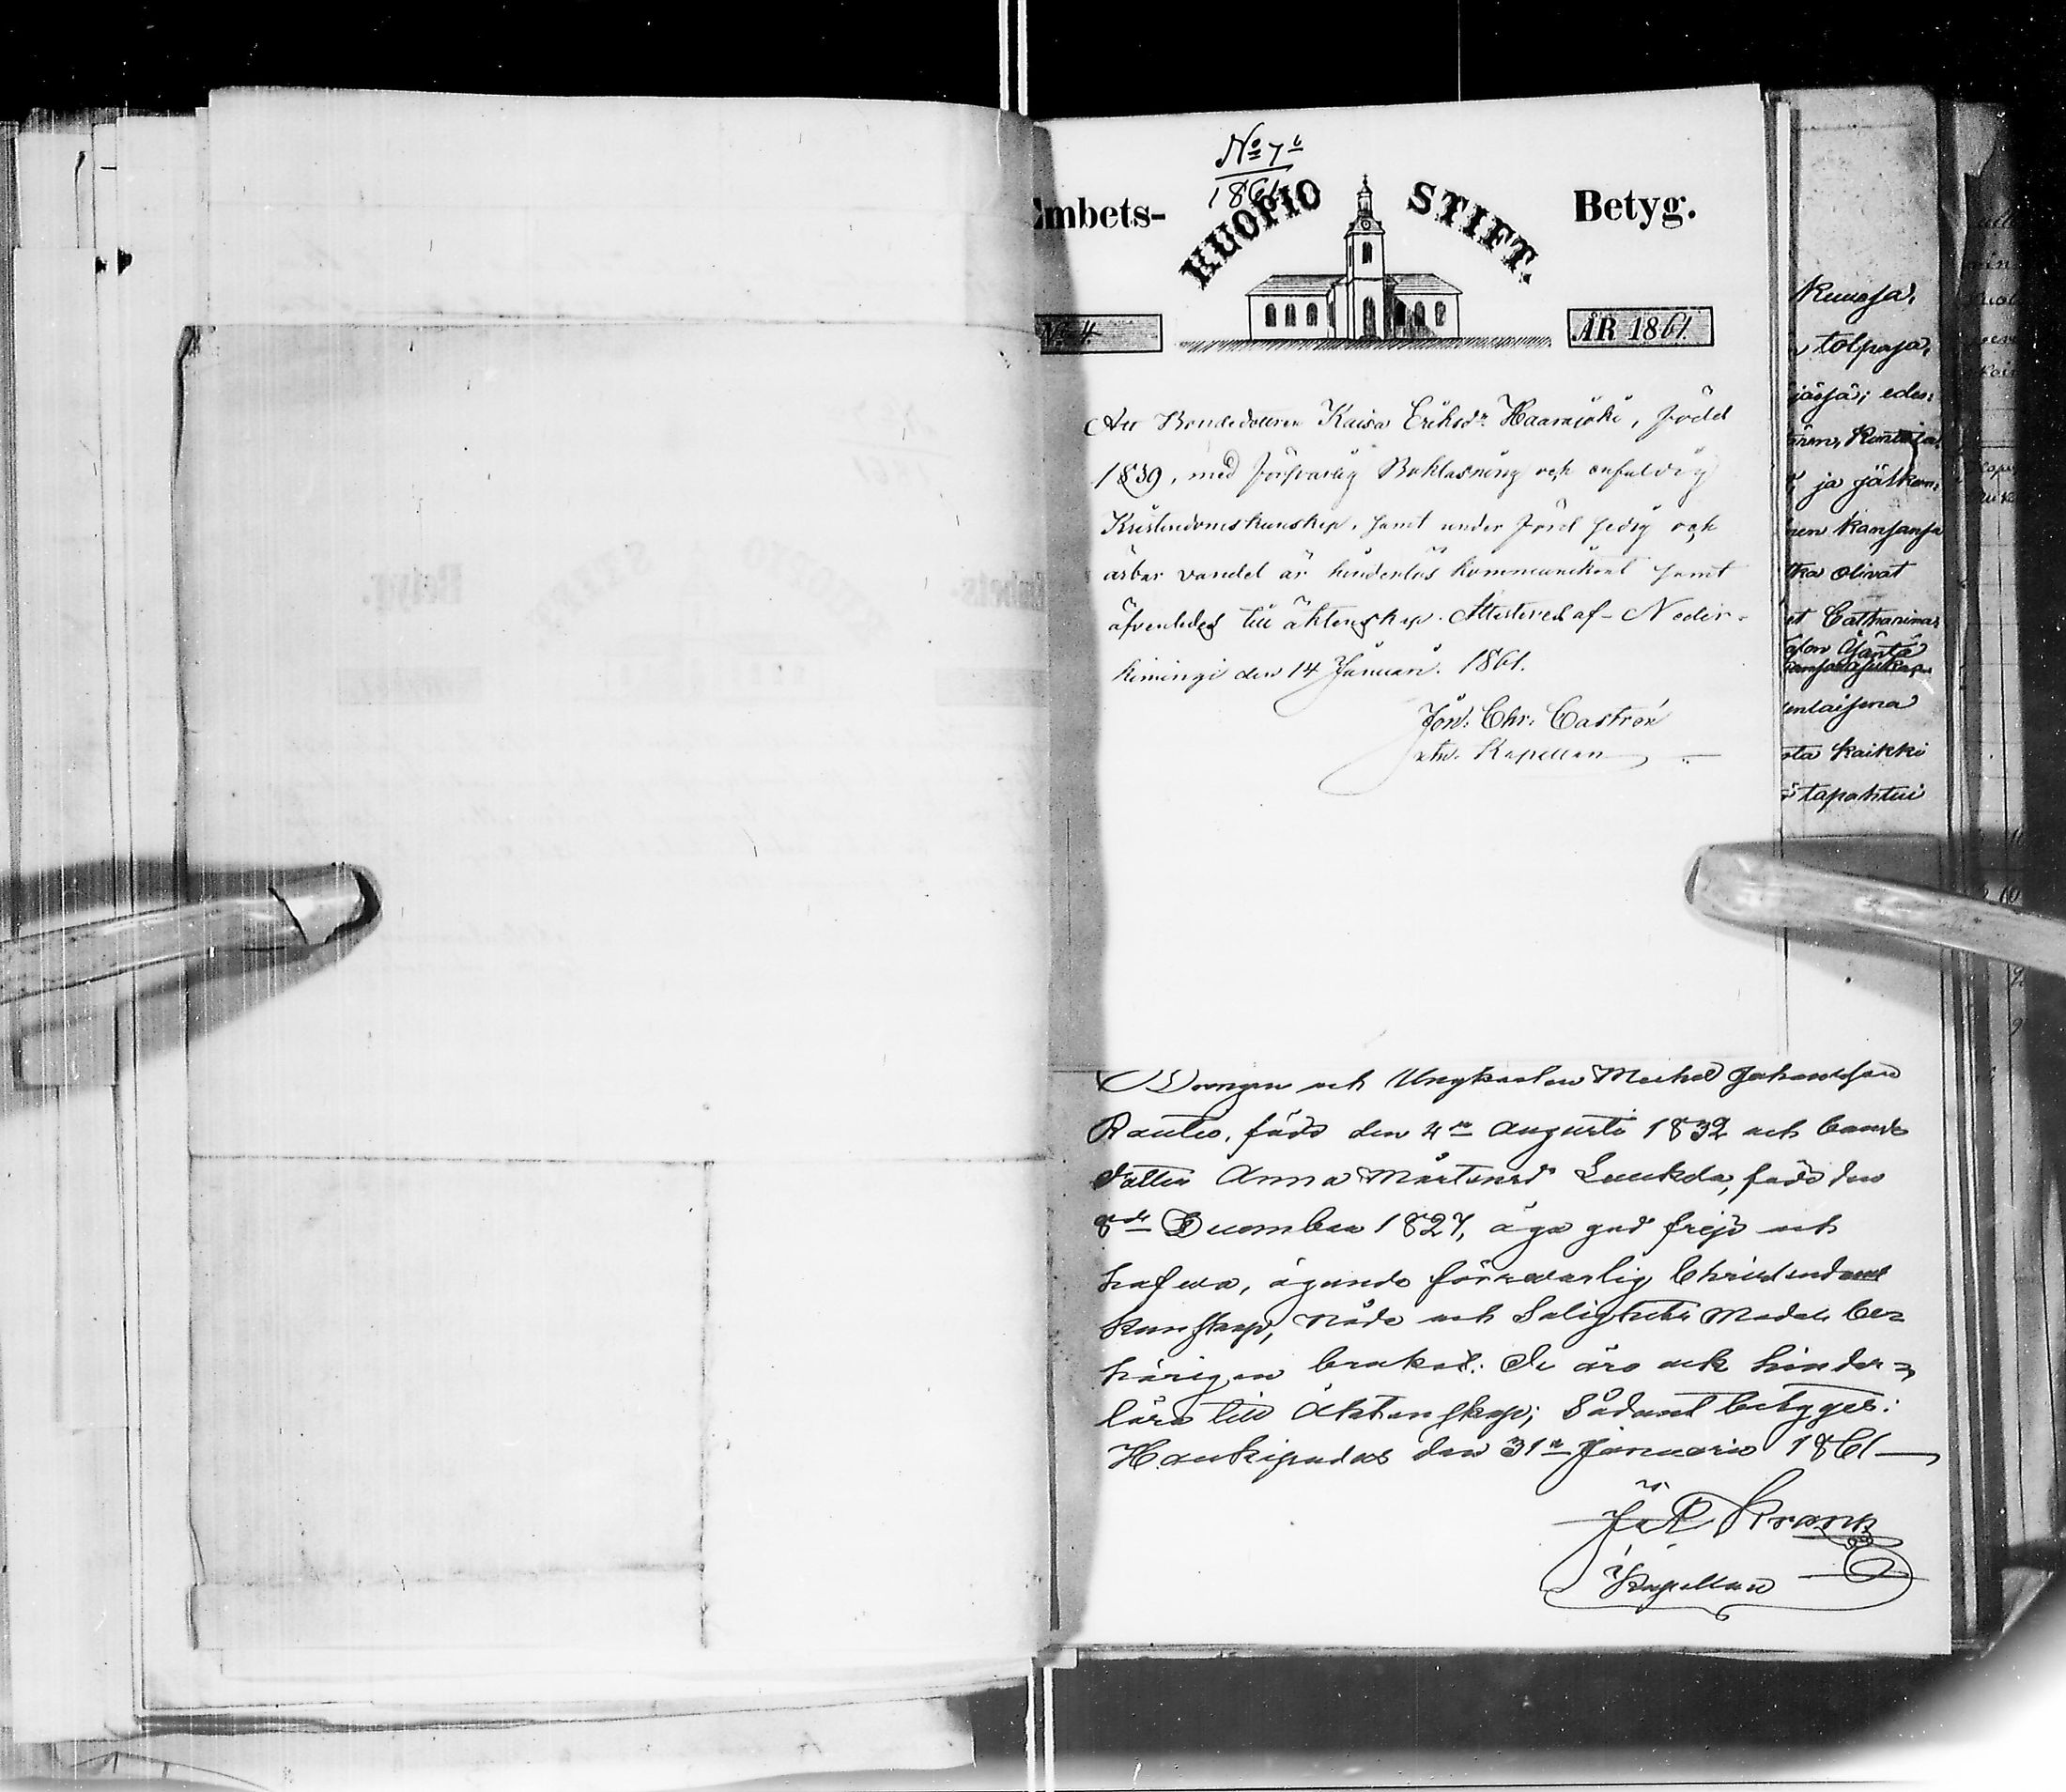 No 7b
1861
Embets- KUOPIO STIFT. Betyg.
No 4. ÅR 1861.
Att Bondedottren Kaisa Eriksdr Haarajoki, född
1839, med försvarlig Bokläsning och enfaldig
Kristendomskunskap, samt under förd sedig och
ärbar vandel är hinderlös kommunikant samt
äfvenledes till äktenskap. Attesteras af Neder-
kiimingi den 14 Januari. 1861.
Joh. Chr. Castrén
Kapellan
Drengen och Ungkarlen Michel Johansson
Rautio, född den 4de Augusti 1832 och bonde
dotter Anna Mårtensd Luukela, född den
8de December 1827, äga god frejd och
hafwa, ägande förswarlig Christendoms
kunskap, Nåde och Salighets Medel be-
hörigen brukat. De äro ock hinder-
lösa till Äktenskap; Sådant betygges:
Haukipudas den 31e Januarii 1861
J R Krank
Kapellan
tolpaja,
edes:
ja jälken:
Kansansa
olivat
Catharinas
kaikki
tapahtui